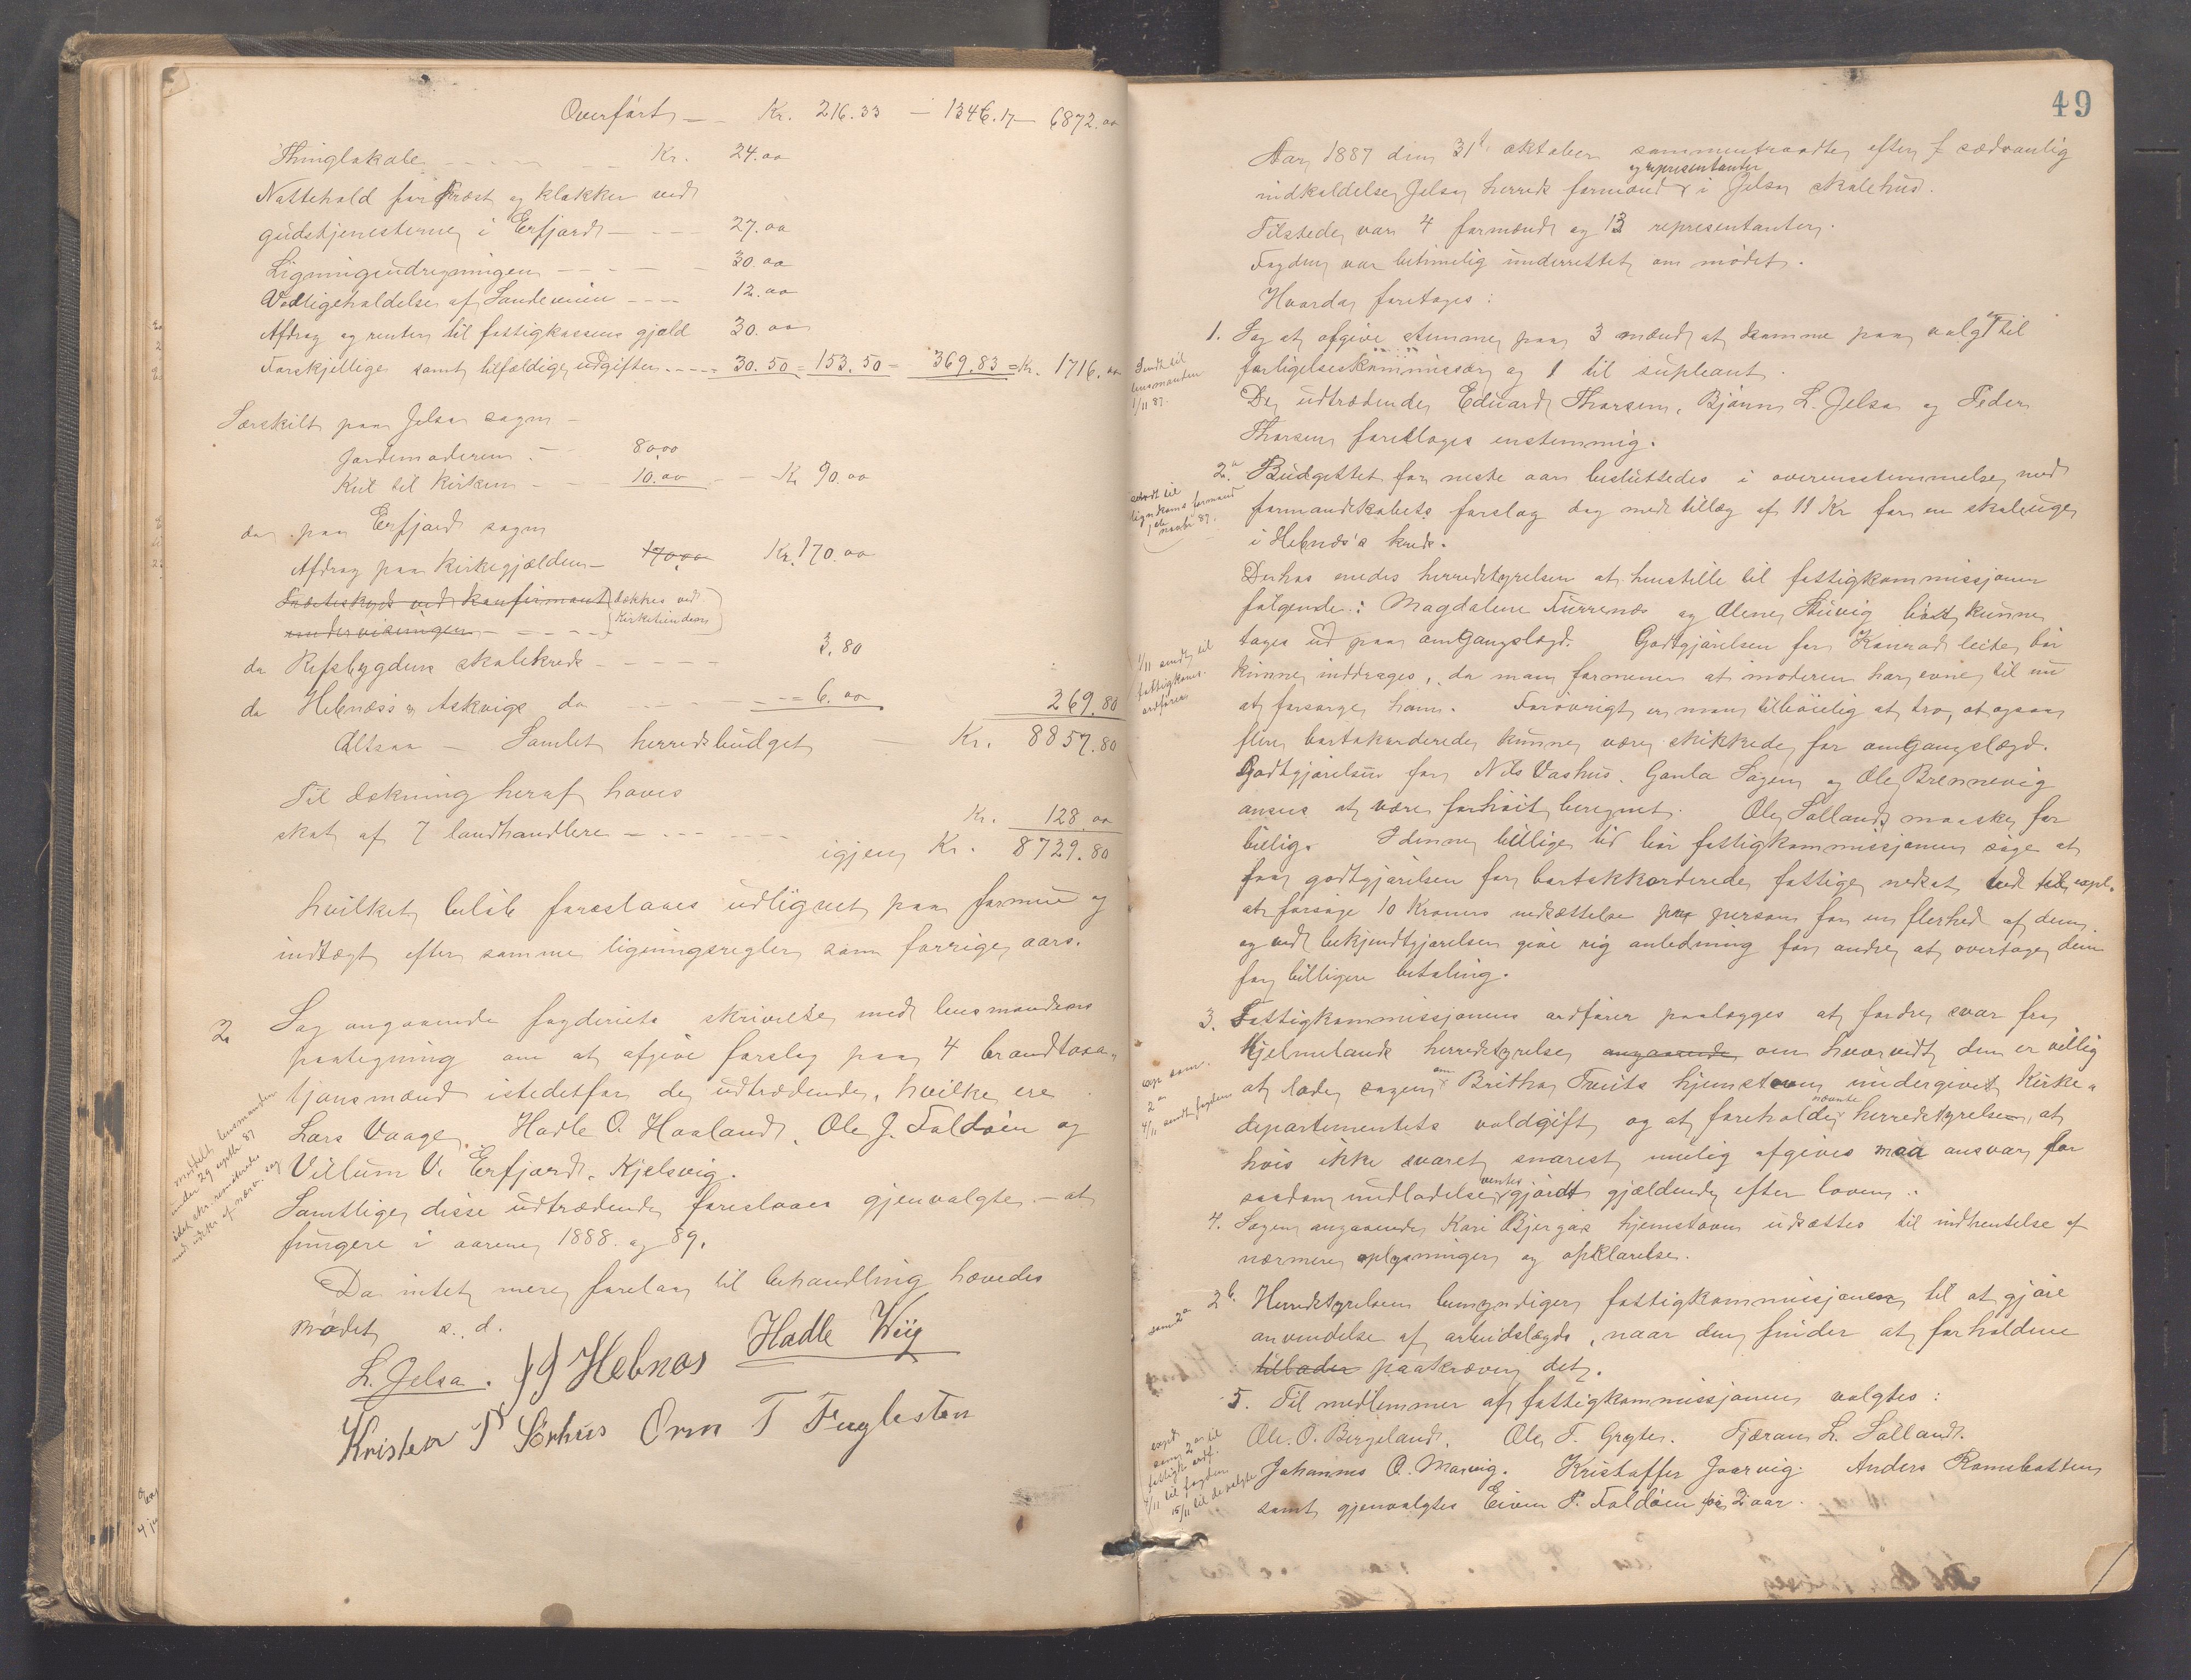 Overført — Kr. 216.33 — 1346.17 — 6872.00
Thinglokale — Kr. 24.00
Nattehold for Præst og klokker ved
gudstjenesterne i Erfjord — 27.00
Ligningsudregningen — 30.00
Vedligeholdelse af Sandeveien — 12.00
Afdrag og renter til fattigkassens gjæld 30.00
Forskjellige samt tilfældige udgifter — 30.50 = 153.50 = 369.83 = Kr. 1716.00
Særskilt paa Jelsa sogn —
Jordemoderen — 80.00
Kul til Kirken — 10.00 — Kr 90.00
do paa Erfjord sogn
Afdrag paa Kirkegjælden — 170.00 Kr. 170.00
Præsteskyds ved konfirmant (dækkes ved
undervisningen — Kirketienden)
do Refsbygdens skolekreds — 3.80
do Hebnæs's & Askvigs do — 6.00 269.80
Altsaa — Samlet herredsbudget — Kr. 8857.80
Til dækning heraf haves
skat af 7 landhandlere — Kr. 128.00
igjen Kr. 8729.80
hvilket beløb foreslaaes udlignet paa formue og
indtægt efter samme ligningsregler som forrige aars.
2. Sag angaaende fogderiets skrivelse med lensmandens
paategning om at afgive forslag paa 4 brandtaxa-
tjonsmænd istedetfor de udtrædende, hvilke ere
Lars Vaage, Hadle O. Haaland, Ole J. Foldøen og
Villum V. Erfjord, Kjelsvig.
Samtlige disse udtrædende foreslaaes gjenvalgte — at
fungere i aarene 1888 og 89.
meddelt lensmanden
under 29 septbr 87
Da intet mere forelaa til behandling hævedes
mødet s. d.
L. Jelsa. J J Hebnæs Hadle Wiig
Kristen T Sørhus Orm T Fuglesten
49
Aar 1887 den 31te oktober sammentraadte efter sædvanlig
og representanter
indkaldelse Jelsa herreds formænd i Jelsa skolehus.
Tilstede var 4 formænd og 13 representanter.
Fogden var betimelig underrettet om mødet.
Hvorda foretages:
1. Sag at afgive stemme paa 3 mænd at komme paa valg til
forligelseskommissær og 1 til supleant.
Sendt til
lensmanden
1/11 87.
De udtrædende Eduard Thorsen, Bjørn L. Jelsa og Peder
Thorsen foreslages enstemmig.
2.a Budgettet for neste aar besluttedes i overensstemmelse med
formandskabets forslag dog med tillæg af 11 Kr for en skoleuge
i Hebnæs's kreds.
Derhos enedes herredstyrelsen at henstille til fattigkommissjonen
følgende: Magdalene Furrenæs og Alene Stuvig bør kunne
tages ud paa omgangslægd. Godtgjørelsen for Konrad Leite bør
1/11 sendt til
fattigkoms.
ordfører
kunne inddrages, da man formener at moderen har evne til nu
at forsørge ham. Forøvrigt er man tilbøielig at tro, at ogsaa
flere bortakorderede kunne være skikkede for omgangslægd.
Godtgjørelsen for Nils Vashus, Gonla Sagen og Ole Brennevig
ansees at være forhøit beregnet. Ole Sølland maaske for
billig. I denne billige tid bør fattigkommissjonen søge at
faa godtgjørelsen for bortakkorderede fattige nedsat ved
at forsøge 10 Kroners nedsættelse pr person for en flerhed af dem
og ved bekjendtgjørelsen give rig anledning for andre at overtage dem
for billigere betaling.
3. Fattigkommissjonens ordfører paalægges at fordre svar fra
Hjelmelands herredstyrelse angaaende om hvorvidt den er villig
at lade sagen om Britha Tveits hjemstavn undergivet Kirke-
departementets voldgift og at foreholde nævnte herredstyrelse, at
hvis ikke svaret snarest mulig afgives med ansvar for
saadan undladelse ventes gjørdt gjældende efter loven.
4. Sagen angaaende Kari Bjergas hjemstavn udsættes til indhentelse af
nærmere oplysninger og opklarelse.
2b. Herredstyrelsen bemyndiger fattigkommissjonen til at gjøre
som 2a
anvendelse af arbeidslægde, naar den finder at forholdene
tillader paakræver det.
5. Til medlemmer af fattigkommissjonen valgtes:
Ole O. Bergeland, Ole T. Grytes. Tjæran L. Sølland.
Johannes O. Marvig. Kristoffer Jaarvig. Anders Ramsbotten
samt gjenvalgtes Eivin P. Foldøen for 2 aar.